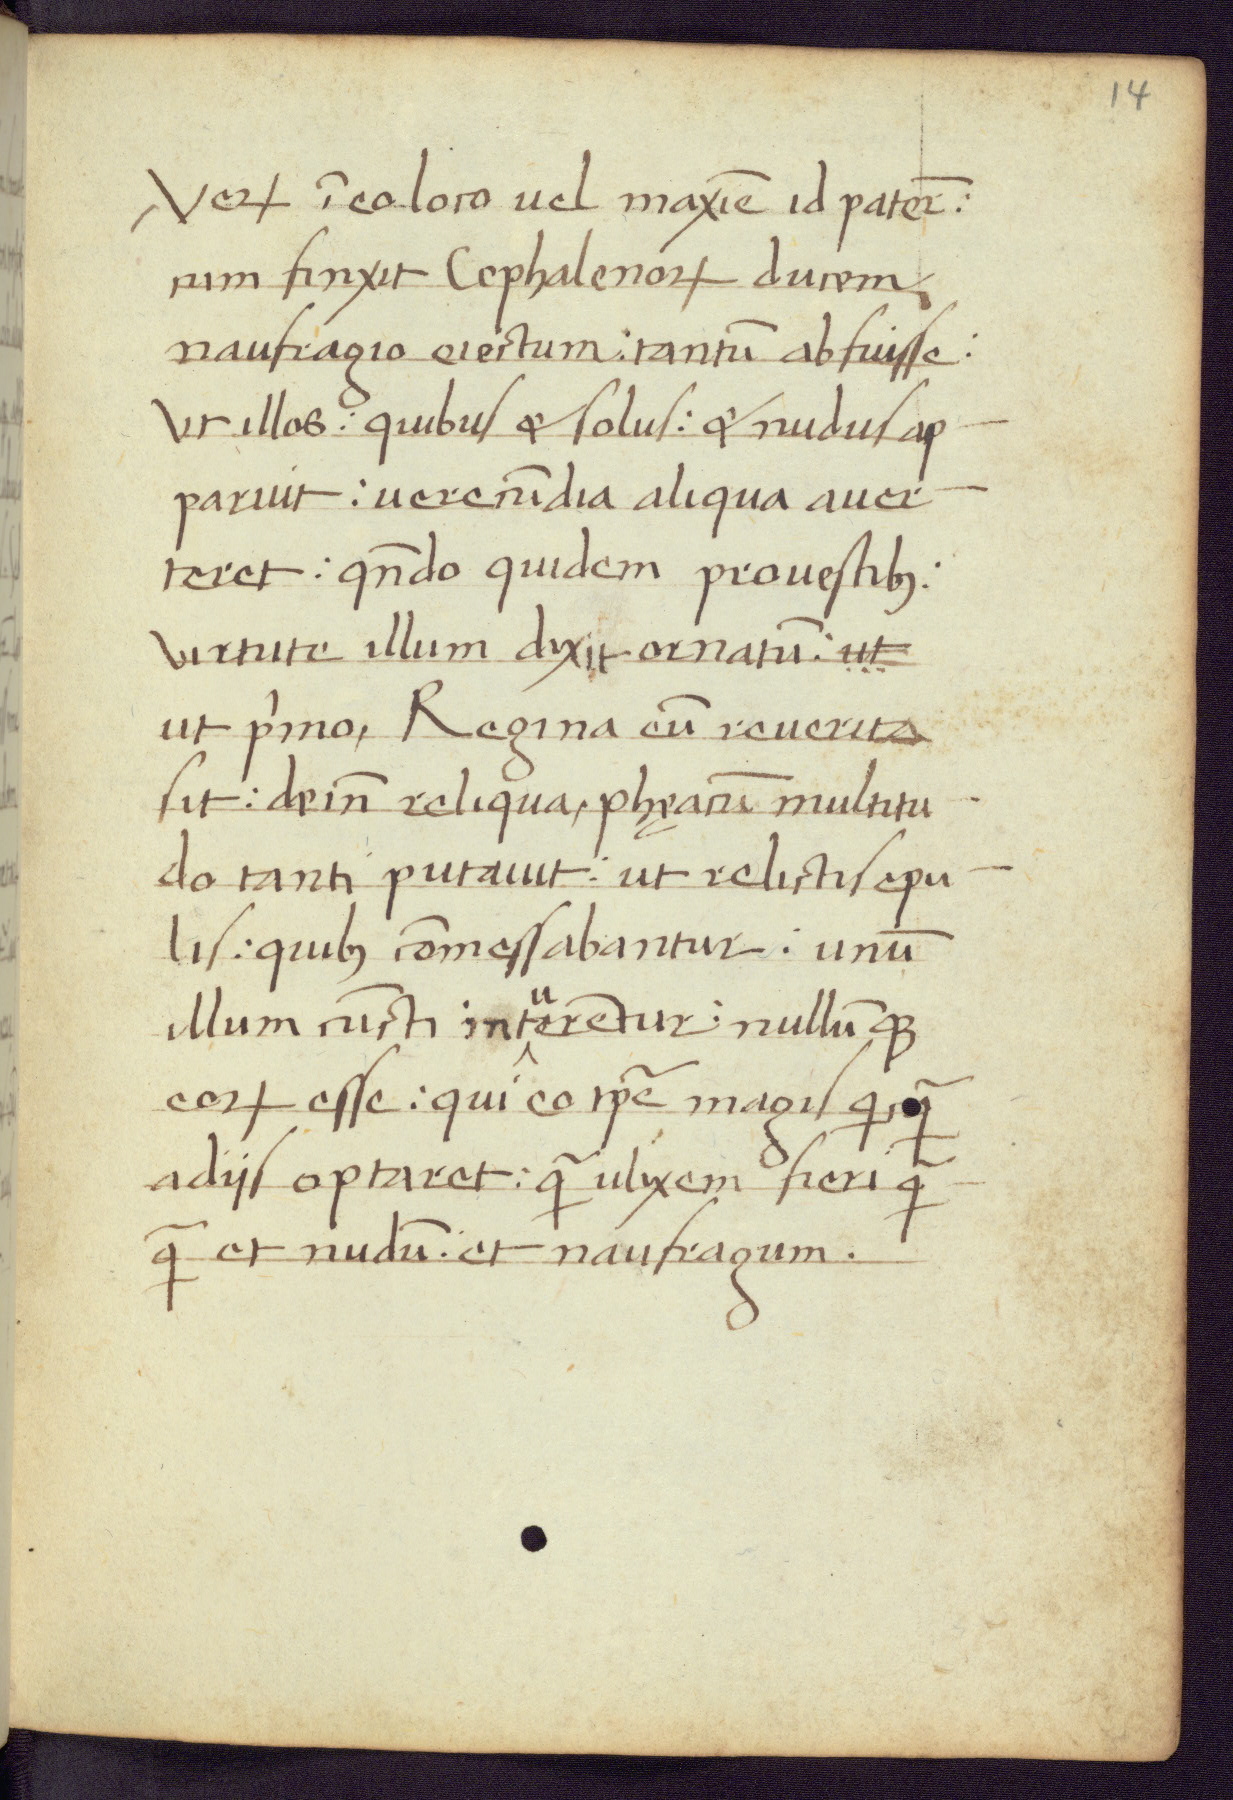 14
Veꝝ ī eo loco uel maxīe id pater̄:
cum finxit Cephalenoꝝ ducem
naufragio eiectum: tantū abfuisse:
Vt illos: quibus & solus: & nudus ap-
paruit: uerecūdia aliqua auer-
teret: qñdo quidem pro uestib;:
virtute illum dixit ornatū: ut
ut p̍mo, Regina eū reuerita
sit: dein̄ reliqua, phęacū multitu-
do tanti putauit: ut relictis epu-
lis: quib; cōmessabantur: unū
illum cūcti intuerētur: nullūq;
eoꝝ esse: qui eo tp̄e magis q̇cq̄
a dijs optaret: q̄ ulixem fieri q̄-
q̄ et nudū: et naufragum.